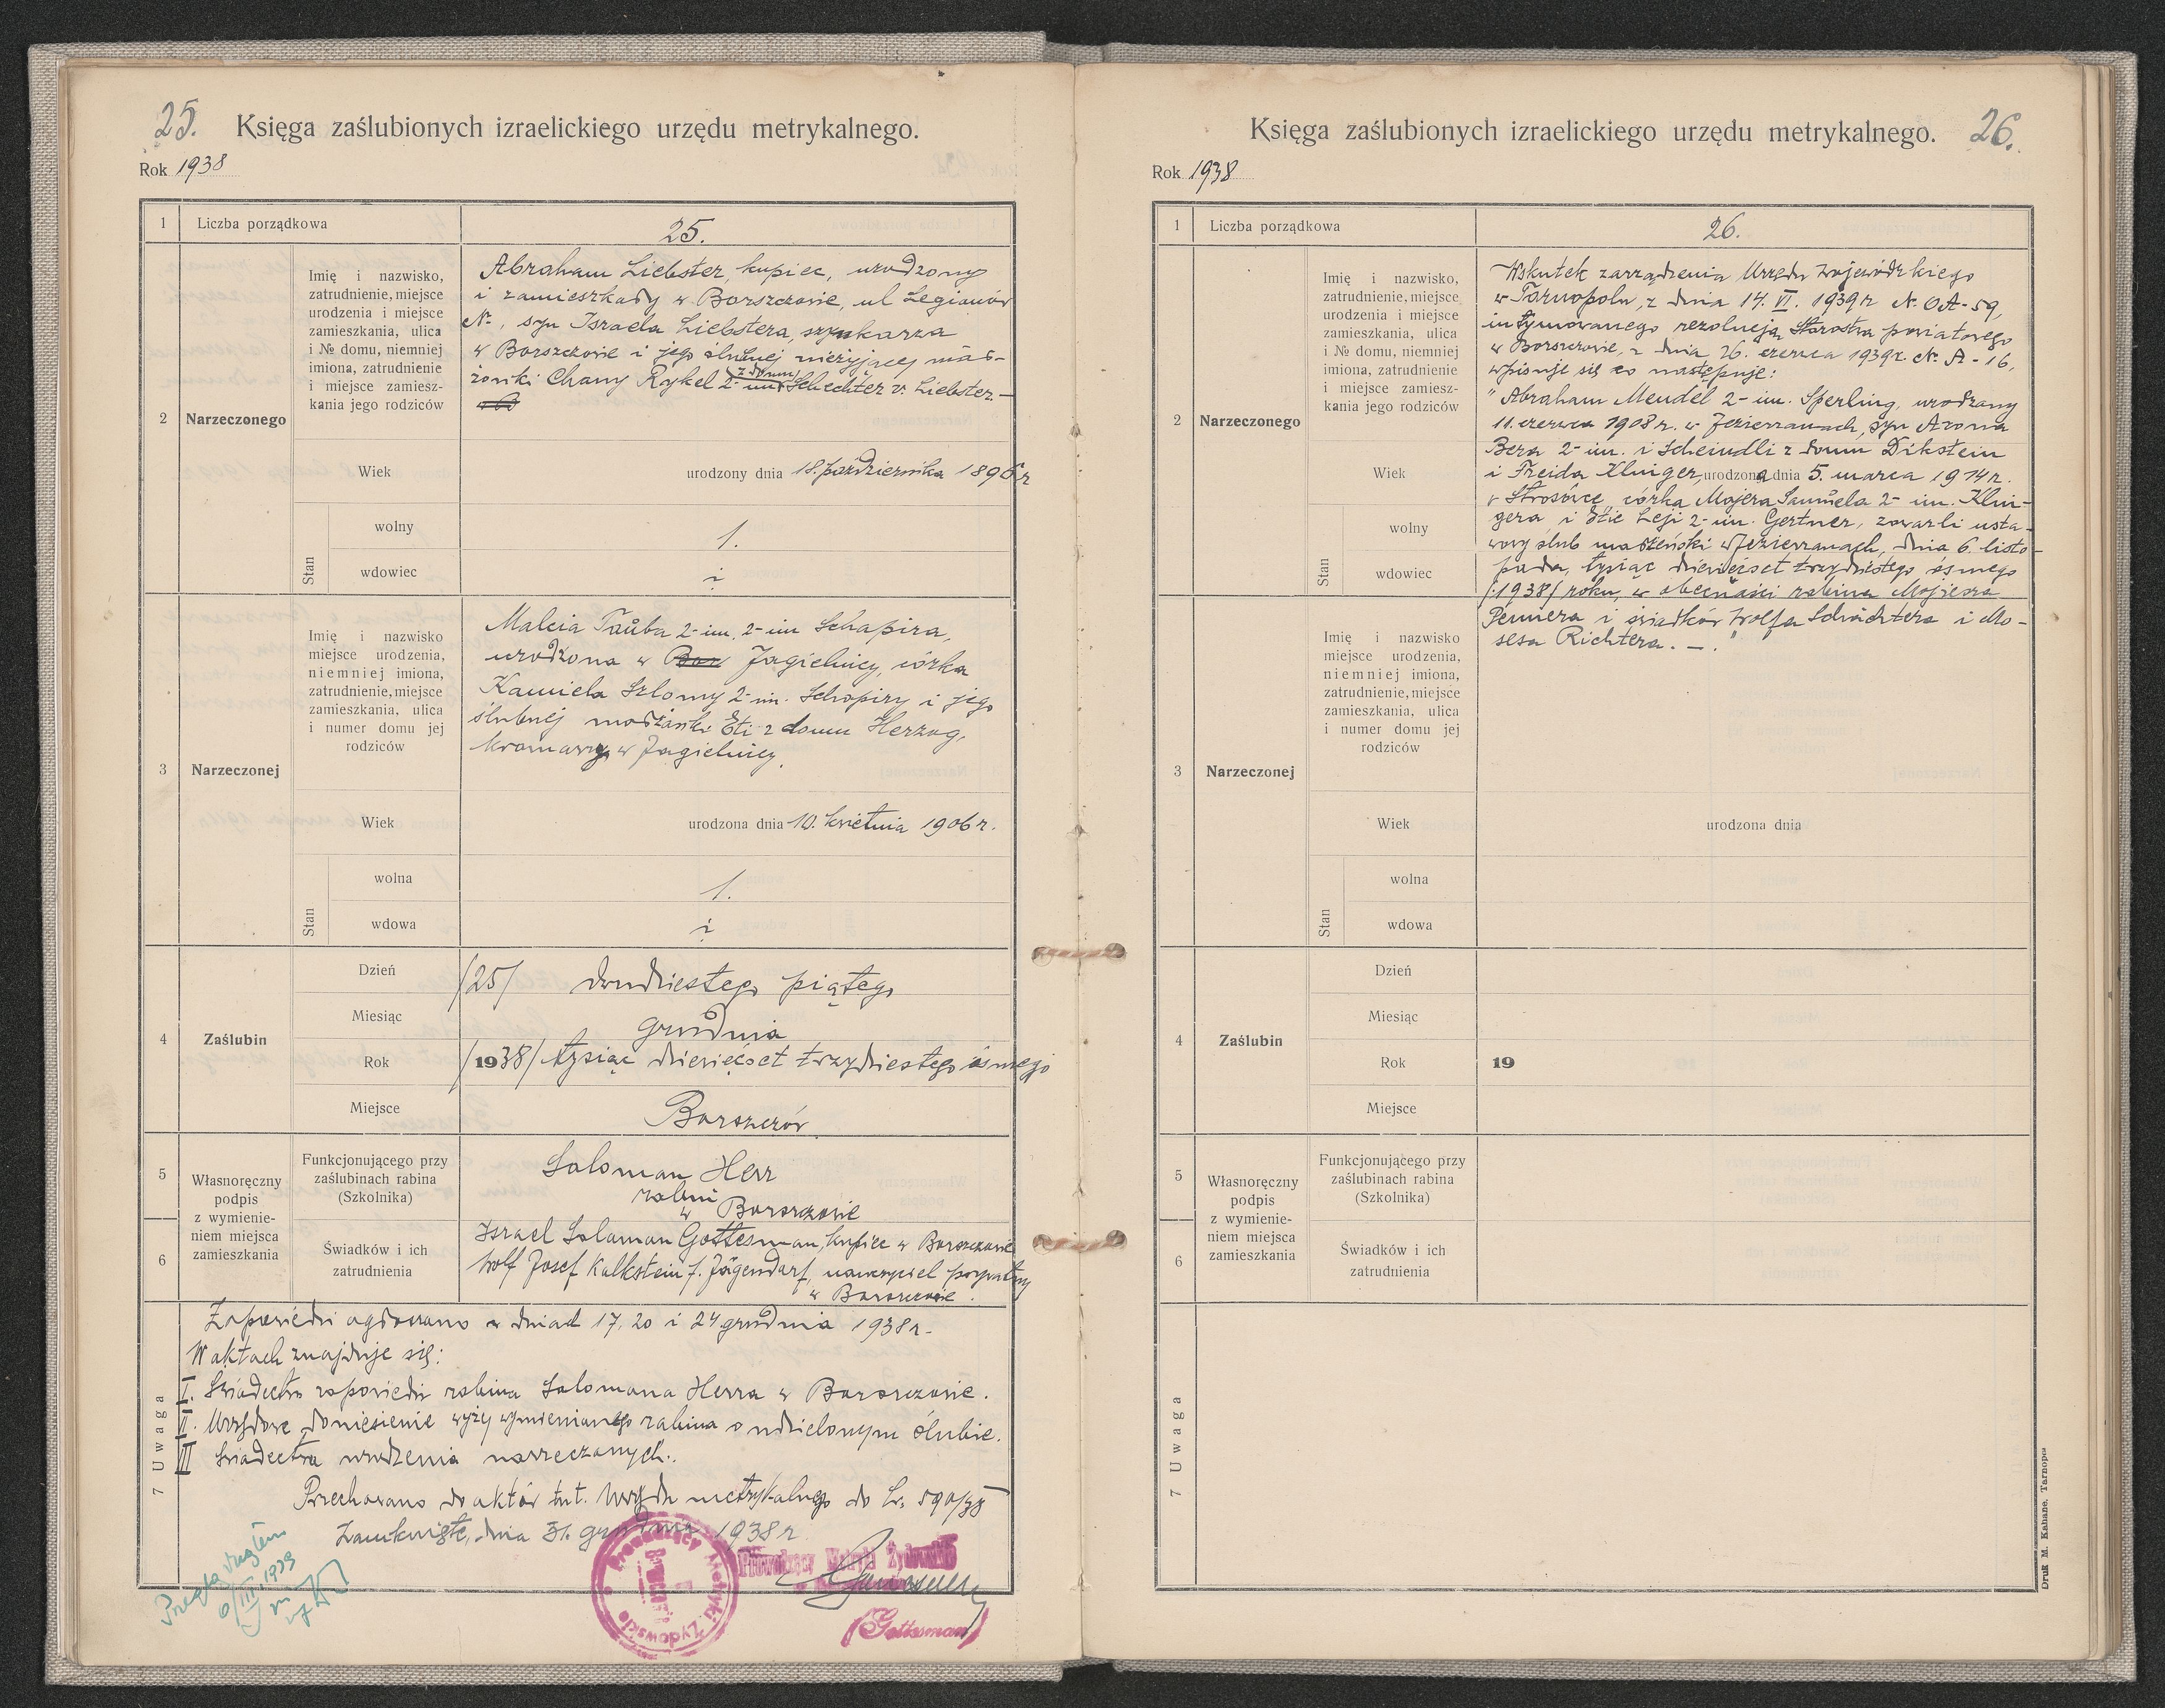 25. Księga zaślubionych izraelickiego urzędu metrykalnego.
Rok 1938
1 Liczba porządkowa 25.
2 Narzeczonego
Imię i nazwisko,
zatrudnienie, miejsce
urodzenia i miejsce
zamieszkania, ulica
i № domu, niemniej
imiona, zatrudnienie
i miejsce zamiesz-
kania jego rodziców
Abraham Liebster, kupiec, urodzony
i zamieszkały w Borszczowie, ul Legionów
№, syn Israela Liebstera, szynkarza
w Borszczowie i jego ślubnej nieżyjącej mał-
żonki Chany Rykel z domu Schechter v. Liebster.—
Wiek urodzony dnia 18. października 1896 r
Stan
wolny 1.
wdowiec i
3 Narzeczonej
Imię i nazwisko
miejsce urodzenia,
niemniej imiona,
zatrudnienie, miejsce
zamieszkania, ulica
i numer domu jej
rodziców
Malcia Tauba 2-im, 2-im Schapira,
urodzona w Bor Jagielnicy, córka
Kamiela Szlomy 2-im. Schapiry i jego
ślubnej małżonki Eti z domu Herzog,
kramarzy w Jagielnicy.
Wiek urodzona dnia 10. kwietnia 1906 r.
Stan
wolna 1.
wdowa i
4 Zaślubin
Dzień /25/ dwudziestego piątego
Miesiąc grudnia
Rok /1938/ tysiąc dziewięćset trzydziestego ósmego
Miejsce Borszczów
5 6 Własnoręczny
podpis
z wymienie-
niem miejsca
zamieszkania
Funkcjonującego przy
zaślubinach rabina
(Szkolnika)
Saloman Herr
rabin
w Borszczowie
Świadków i ich
zatrudnienia
Israel Salaman Gottesman, kupiec w Borszczowie
Wolf Josef Kalkstein f. Jägendorf, nauczyciel prywatny
w Borszczowie.
7 Uwaga
Zapowiedzi ogłoszono w dniach 17, 20 i 24 grudnia 1938 r.
W aktach znajduje się:
I. Świadectwo zapowiedzi rabina Salomana Herra w Borszczowie.
II. Urzędowe doniesienie wyżej wymienionego rabina o udzielonym ślubie.
III Świadectwa urodzenia narzeczonych.
Przechowano do aktów tut. Urzędu metrykalnego do L. 590/38
Zamknięte, dnia 31. grudnia 1938 r
Przeglądnąłem
6/III 1939
Prowadzący Metryki Żydowskie
Prowadzący Metryki Żydowskie
(Gottesman)
Księga zaślubionych izraelickiego urzędu metrykalnego. 26.
Rok 1938
1 Liczba porządkowa 26.
2 Narzeczonego
Imię i nazwisko,
zatrudnienie, miejsce
urodzenia i miejsce
zamieszkania, ulica
i № domu, niemniej
imiona, zatrudnienie
i miejsce zamiesz-
kania jego rodziców
Wiek
Stan
wolny
wdowiec
Wskutek zarządzenia Urzędu Wojewódzkiego
w Tarnopolu, z dnia 14. VI. 1939 r № OA-59,
intymowanego rezolucją Starostwa powiatowego
w Borszczowie, z dnia 26. czerwca 1939 r. № A-16,
wpisuje się co następuje:
"Abraham Mendel 2-im. Sperling, urodzony
11. czerwca 1908 r. w Jezierzanach, syn Arona
Bera 2-im. i Scheindli z domu Dikstein
i Freida Klinger, urodzona dnia 5. marca 1914 r.
w Strusówce, córka Majera Samuela 2-im. Klin-
gera i Etie Leji 2-im. Gertner, zawarli usta-
wowy ślub małżeński w Jezierzanach, dnia 6. listo-
pada, tysiąc dziewięćset trzydziestego ósmego
/1938/ roku, w obecności rabina Mojżesza
Pennera i świadków Wolfa Schächtera i Mo-
sesa Richtera. —."
3 Narzeczonej
Imię i nazwisko
miejsce urodzenia,
niemniej imiona,
zatrudnienie, miejsce
zamieszkania, ulica
i numer domu jej
rodziców
Wiek urodzona dnia
Stan
wolna
wdowa
4 Zaślubin
Dzień
Miesiąc
Rok 19
Miejsce
5 6 Własnoręczny
podpis
z wymienie-
niem miejsca
zamieszkania
Funkcjonującego przy
zaślubinach rabina
(Szkolnika)
Świadków i ich
zatrudnienia
7 Uwaga
Druk M. Kahane, Tarnopol